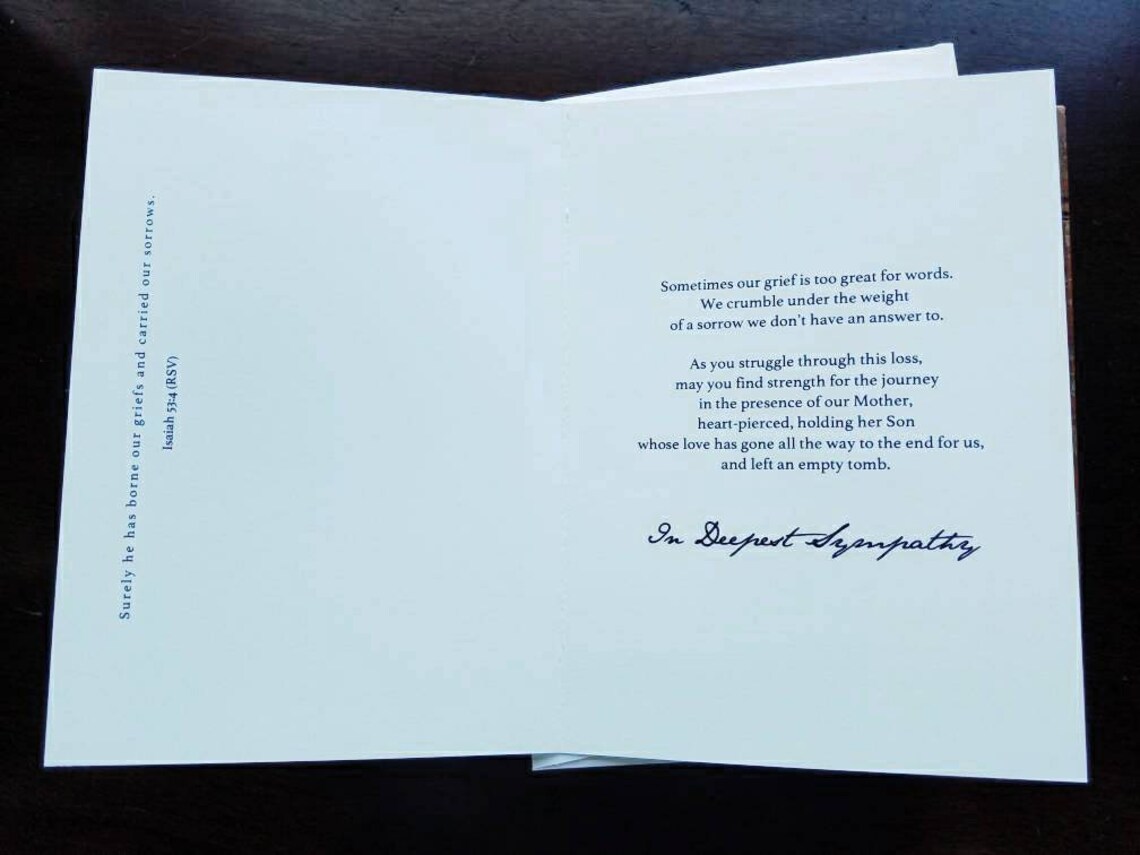 Surely he has borne our griefs and carried our sorrows.
Isaiah 53:4 (RSV)
Sometimes our grief is too great for words.
We crumble under the weight
of a sorrow we don't have an answer to.
As you struggle through this loss,
may you find strength for the journey
in the presence of our Mother,
heart-pierced, holding her Son
whose love has gone all the way to the end for us,
and left an empty tomb.
In Deepest Sympathy